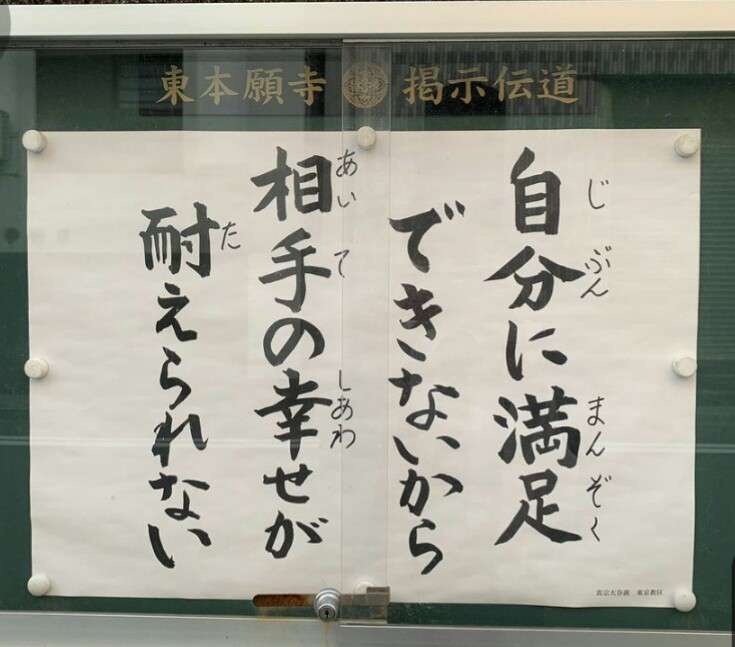 東本願寺 掲示伝道
自分に満足
できないから
相手の幸せが
耐えられない
じぶん
まんぞく
あいて
しあわ
た
真宗大谷派 東京教区